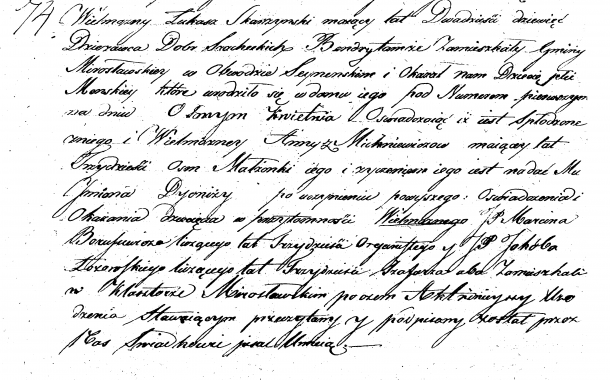 74
Wielmożny Łukasz Skarzynski maiący lat Dwadzieścia dziewięć
Dzierżawca Dobr Szlacheckich zamieszkały Gminy
Mirosławskiey w Obwodzie Seynenskim i Okazał nam Dziecię płci
Męskiey które urodziło się w domu iego pod Numerem pierwszym
na dniu Osmym Kwietnia Oswiadczaiąc iż iest spłodzone
z niego i Wielmożney Anny z Michniewiczow maiącey lat
Trzydzieści Osm Małżonki iego i życzeniem iego iest nadać Mu
Jmiona Dyonizy po uczynieniu powyższego Oswiadczenia i
Okazania dziecięcia w przytomności Wielmożnego JP Marcina
liczącego lat Trzydzieści Organistego y JP Jakóba
liczącego lat Trzydzieści oba Zamieszkali
w Klasztorze Mirosławskim poczem Akt ninieyszy Uro
dzenia Stawaiącym przeczytany y podpisany został przez
Nas Swiadkowie pisać Umieią